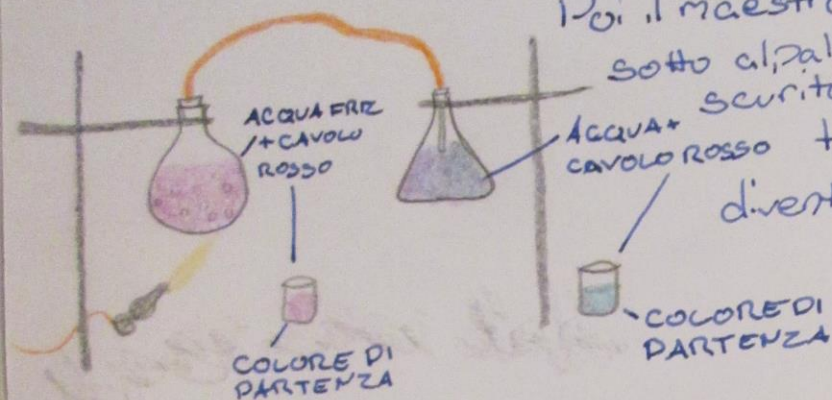 Poi il maestr
sotto al pal
scurit
t
divent
ACQUA FRIZ
/+ CAVOLO
ROSSO
ACQUA+
CAVOLO ROSSO
COLORE DI
PARTENZA
COLORE DI
PARTENZA